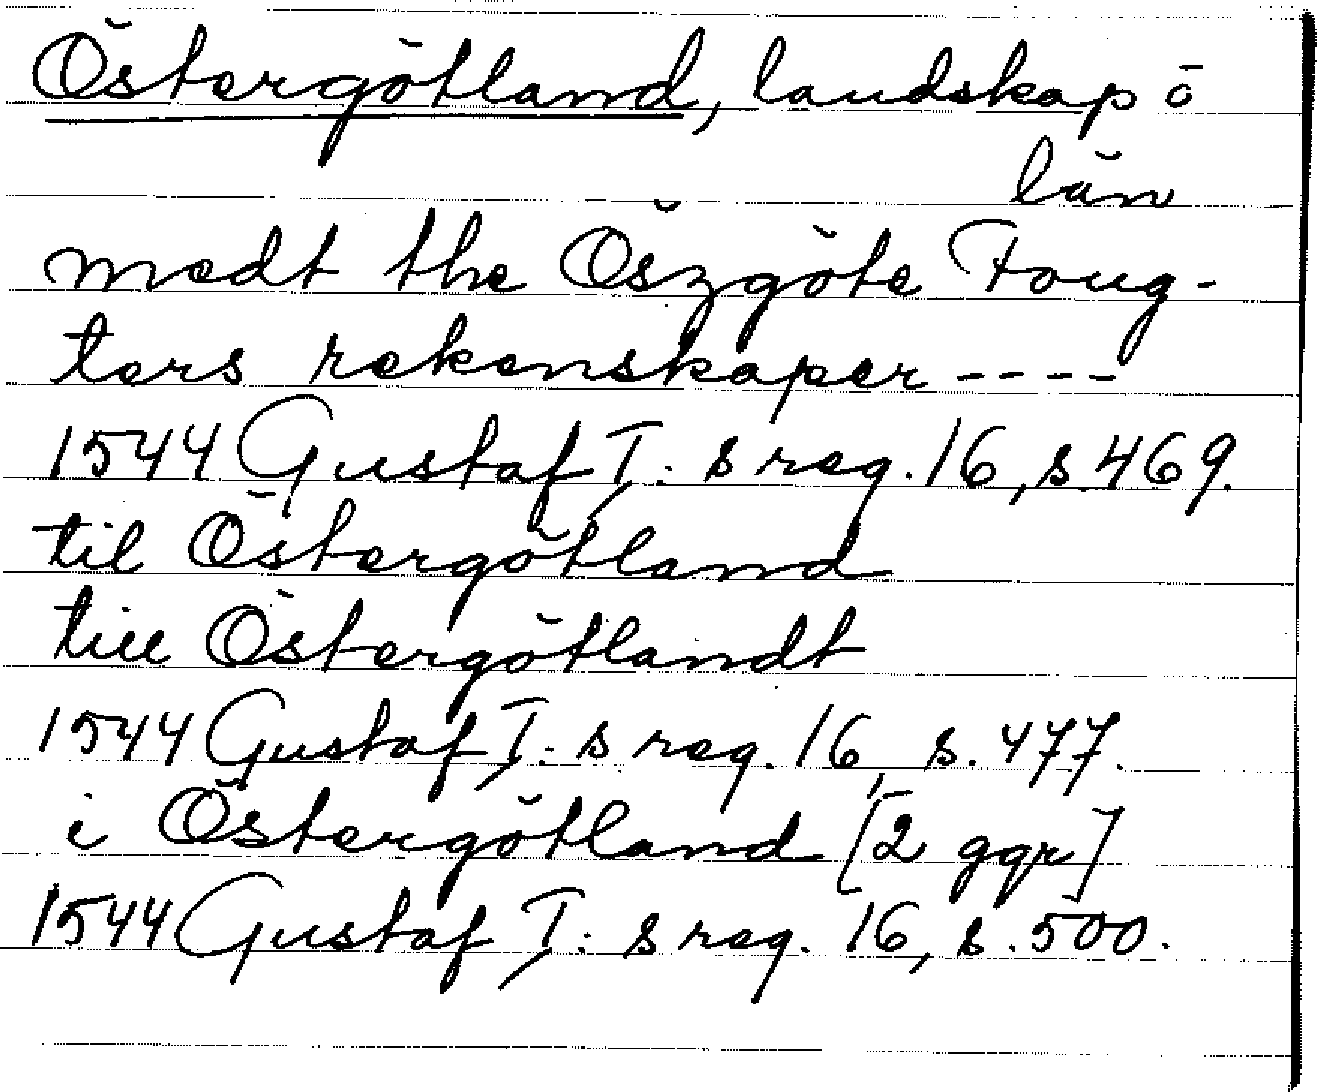 Östergötland, landskap o
län
medt the Öszgöte Foug-
ters rekenskaper ----
1544 Gustaf I: s reg. 16, s. 469.
til Östergötland
till Östergötlandt
1544 Gustaf I: s reg. 16, s. 477.
i Östergötland [2 ggr]
1544 Gustaf I: s reg. 16, s. 500.